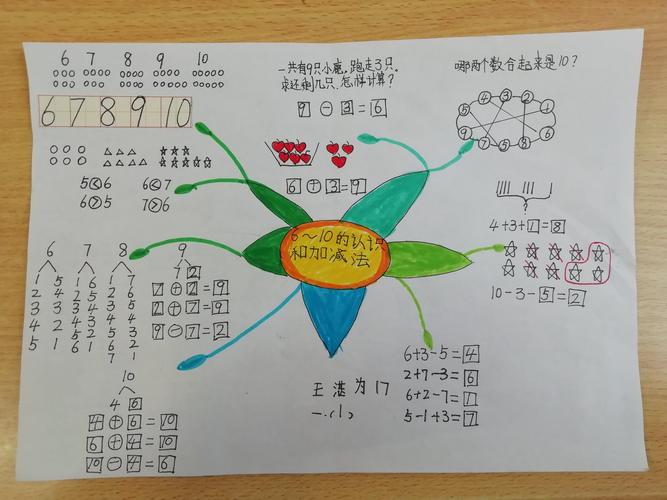 6 7 8 9 10
6 7 8 9 10
5<6 6<7
6>5 7>6
一共有9只小鹿,跑走了3只,
求还剩几只,怎样计算?
9-3=6
6+3=9
哪两个数合起来是10?
5 4 3 2 1
9 7 5 8 6
4+3+1=8
10-3-5=2
6~10的认识
和加减法
6 7 8 9
1 5 1 6 1 7 7 2
2 4 2 5 2 6 7+2=9
3 3 3 4 3 5 2+7=9
4 2 4 3 4 4 9-7=2
5 1 5 2 5 3
6 1 6 2
7 1
10
4 6
4+6=10
6+4=10
10-4=6
6+3-5=4
2+7-3=6
6+2-7=1
5-1+3=7
王湛为17
一.(1)